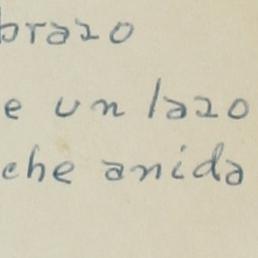 brazo
e un lazo
che anida